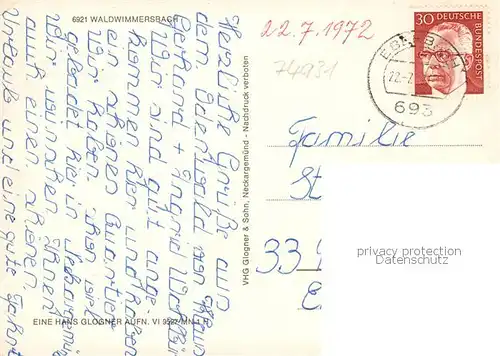 6921 WALDWIMMERSBACH
Herzliche Grüße aus
dem Odenwald von
Gerhard +
Wir sind gut ange-
kommen hier und haben
ein schönes Quartier
Wir haben schon viel
gebadet hier in
Wir wünschen Ihnen
auch einen schönen
Urlaub und eine gute Fahrt
EINE HANS GLOGNER AUFN. VI
VHG Glogner & Sohn, Neckargemünd - Nachdruck verboten
22.7.1972
74931
30 DEUTSCHE
BUNDESPOST
693
Familie
St
33
privacy protection
watermark